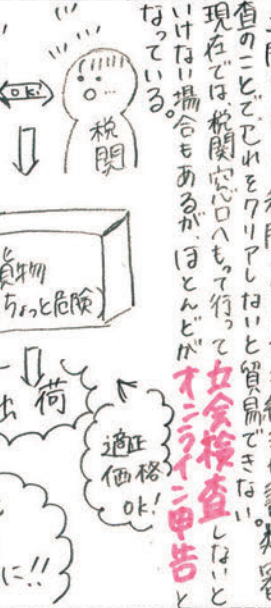 査のことで、これをクリアしないと貿易できない。
現在では、税関窓口へもって行って立会検査しないと
いけない場合もあるが、ほとんどがオンライン申告と
なっている。
OK!
税関
貨物
ちょっと危険
出荷
適正
価格
OK!
に!!